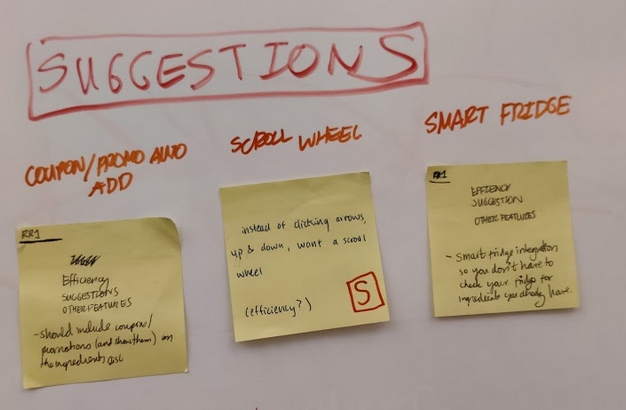 SUGGESTIONS
COUPON/PROMO AUTO
ADD
SCROLL WHEEL
SMART FRIDGE
RR1
Efficiency
SUGGESTIONS
OTHER FEATURES
- Should include coupon/
promotions (and show them) on
the ingredients
instead of clicking arrows,
up & down, want a scroll
wheel
(efficiency?)
S
RR1
EFFICIENCY
SUGGESTION
OTHER FEATURES
- Smart fridge integration
so you don't have to
check your fridge for
ingredients you already have.